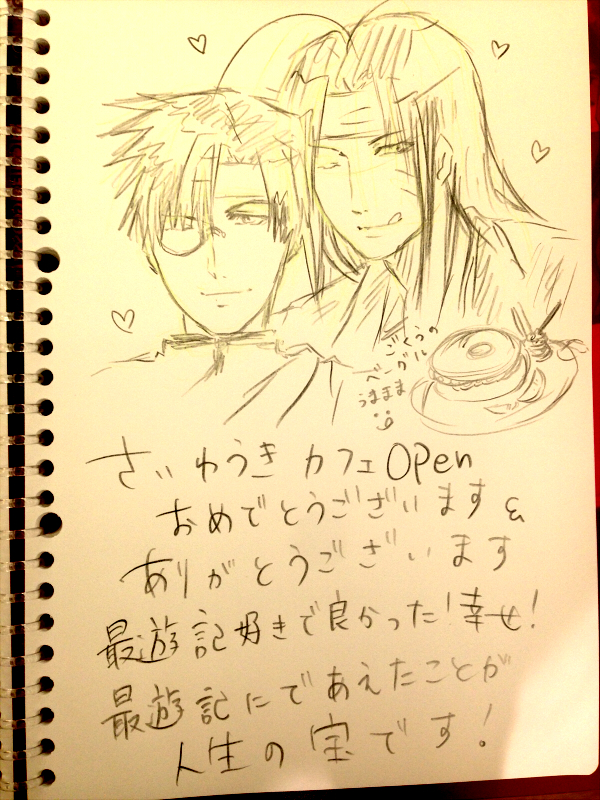 ごくうの
ベーグル
うままま
さいゆうきカフェOpen
おめでとうございます&
ありがとうございます
最遊記好きで良かった!幸せ!
最遊記にであえたことが
人生の宝です!